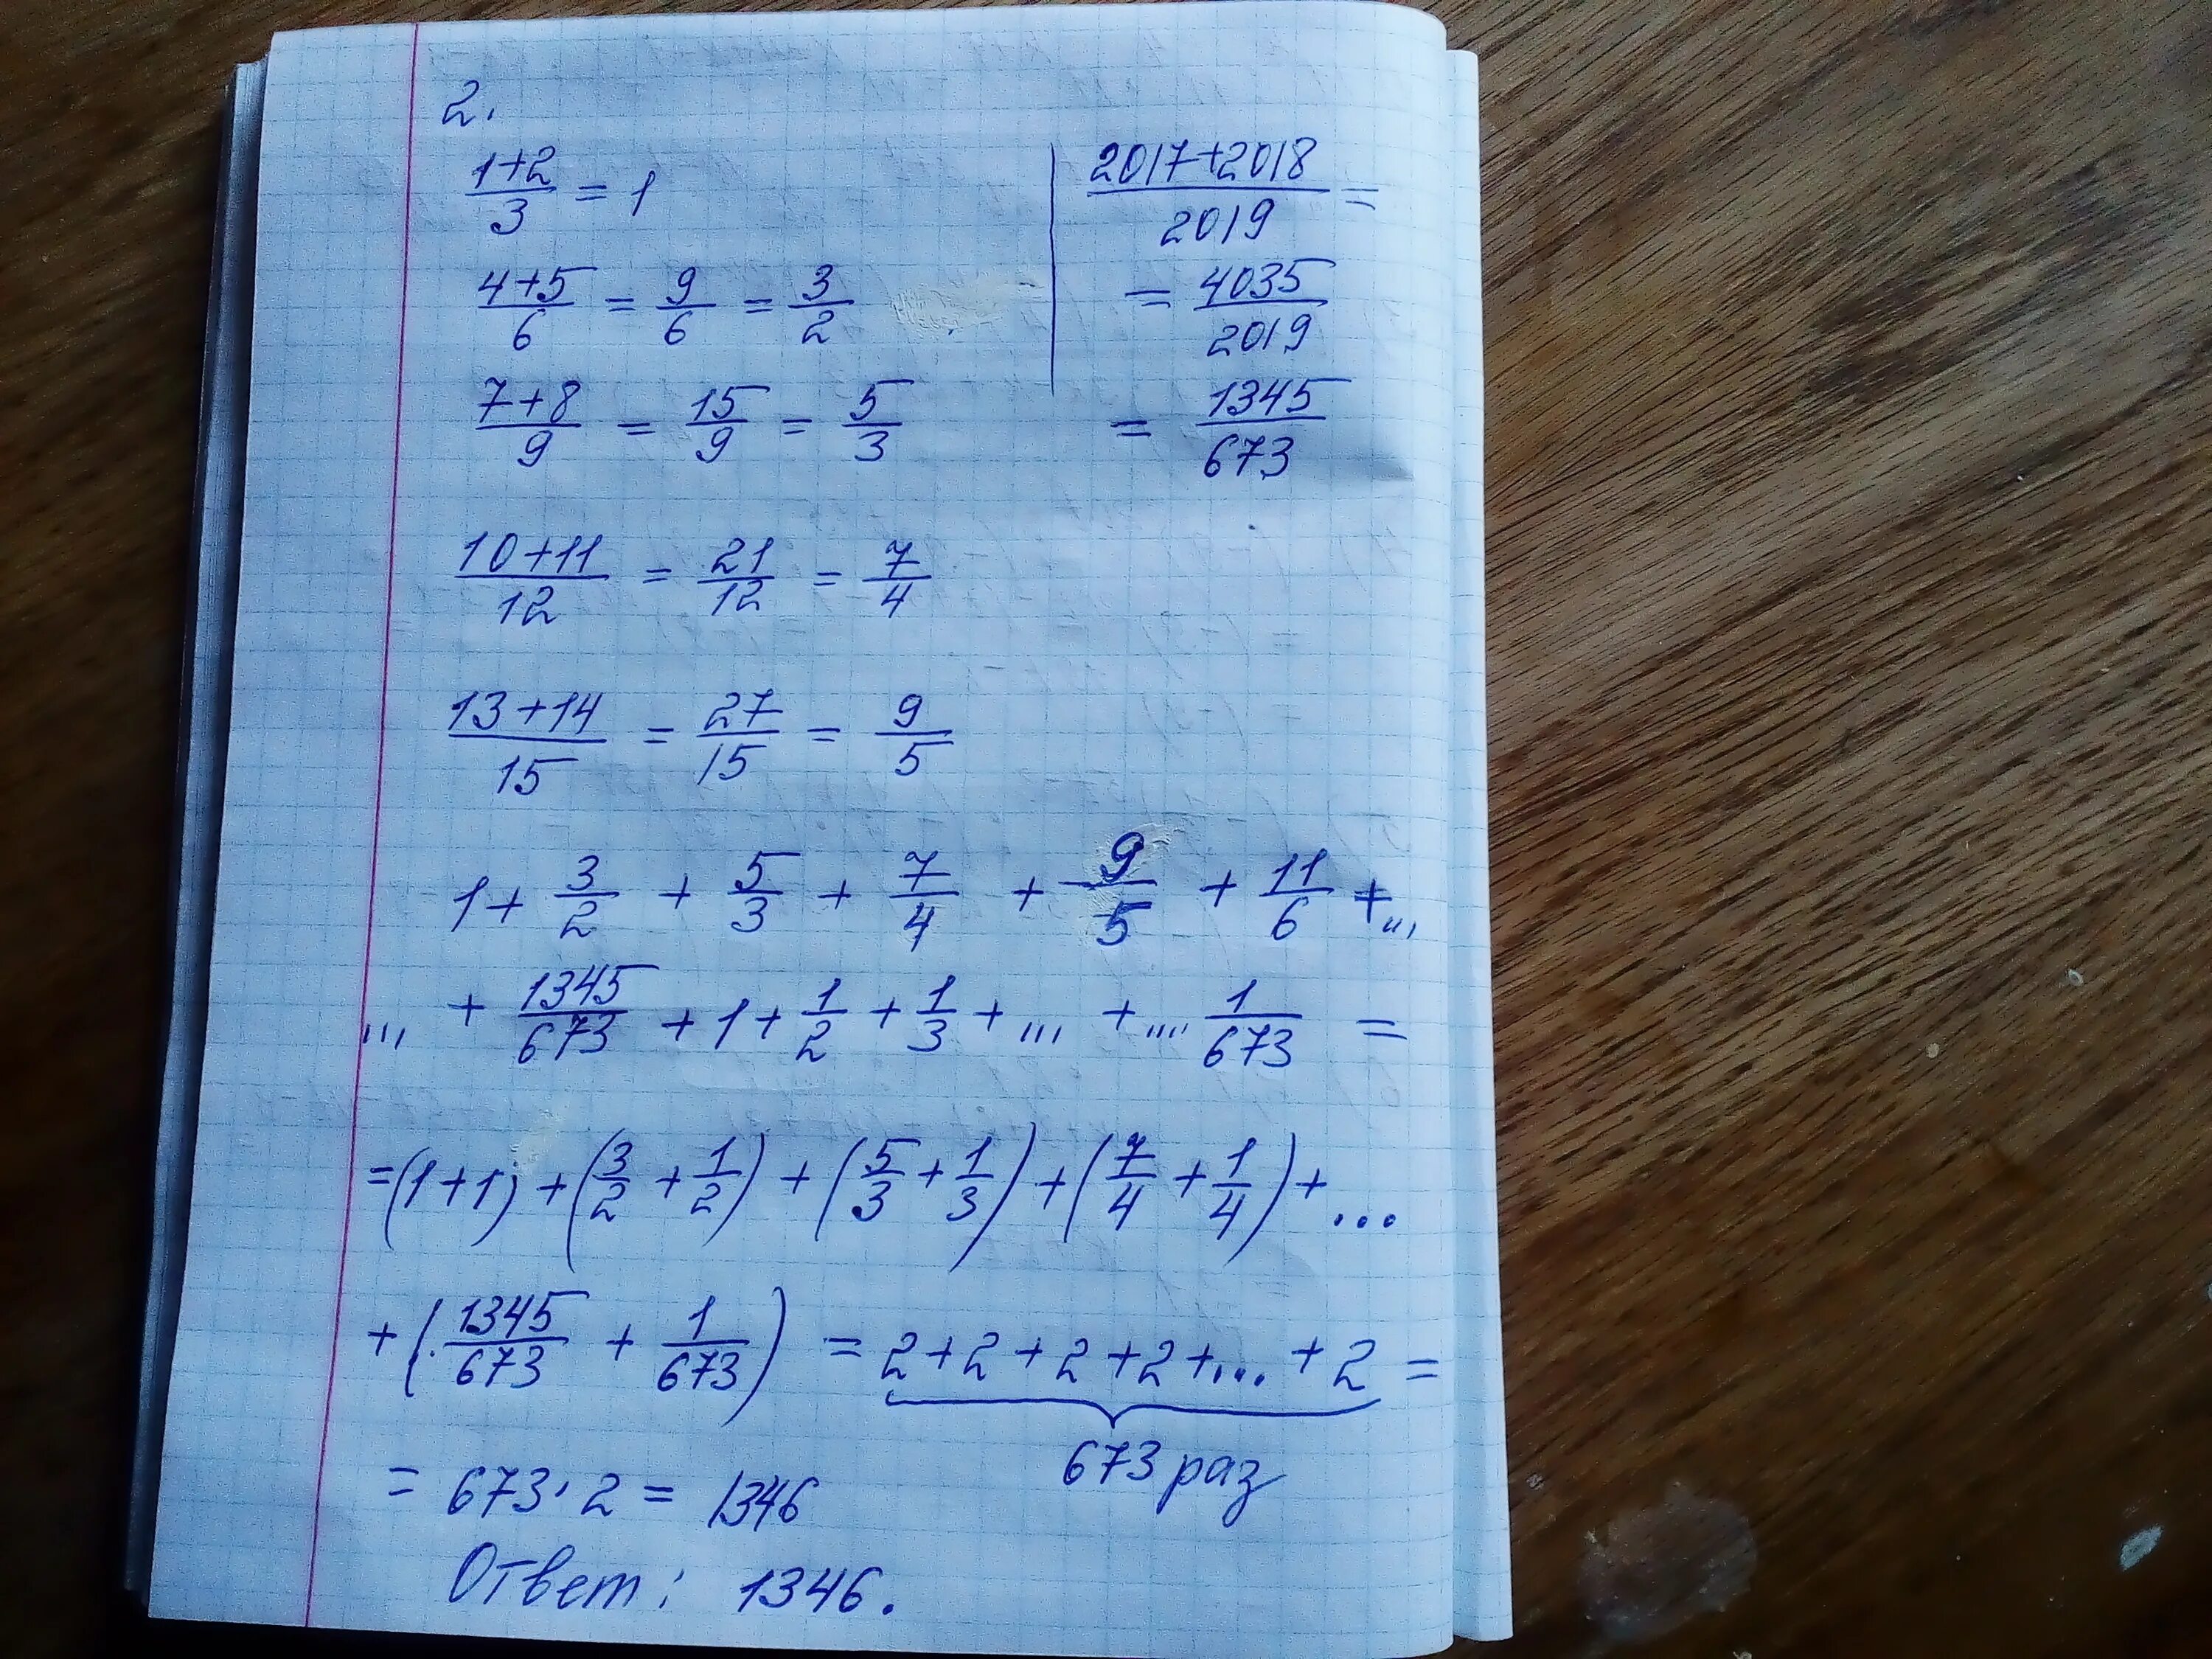 2.
(1+2)/3 = 1
(4+5)/6 = 9/6 = 3/2
(7+8)/9 = 15/9 = 5/3
(10+11)/12 = 21/12 = 7/4
(13+14)/15 = 27/15 = 9/5
(2017+2018)/2019 =
= 4035/2019
= 1345/673
1 + 3/2 + 5/3 + 7/4 + 9/5 + 11/6 + ...
... + 1345/673 + 1 + 1/2 + 1/3 + ... + .... 1/673 =
= (1+1) + (3/2 + 1/2) + (5/3 + 1/3) + (7/4 + 1/4) + ...
+ (1345/673 + 1/673) = 2+2+2+2+... + 2 =
673 раз
= 673 · 2 = 1346
Ответ: 1346.